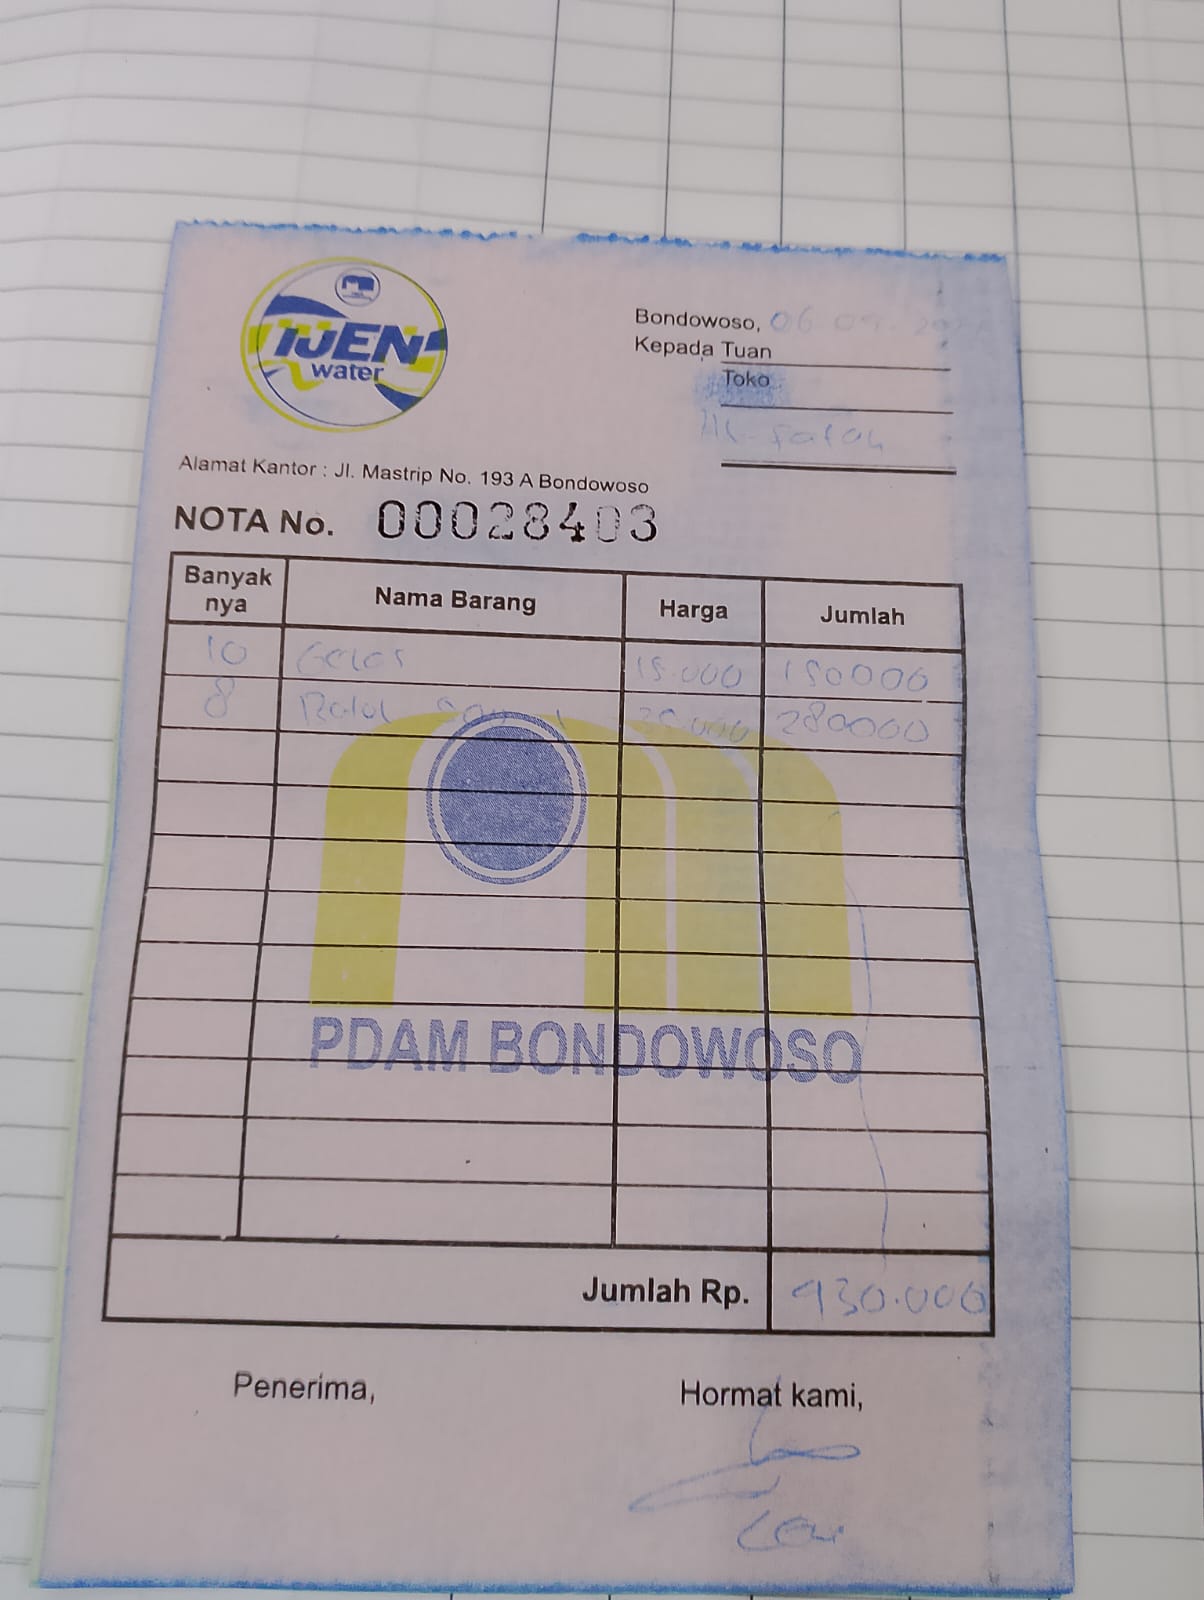 IJEN
water
Bondowoso, 06 09
Kepada Tuan
Toko
Al-Falah
Alamat Kantor : Jl. Mastrip No. 193 A Bondowoso
NOTA No. 00028403
Banyak nya Nama Barang Harga Jumlah
10 Gelas 15.000 150000
8 Botol 280000
PDAM BONDOWOSO
Jumlah Rp. 930.000
Penerima, Hormat kami,